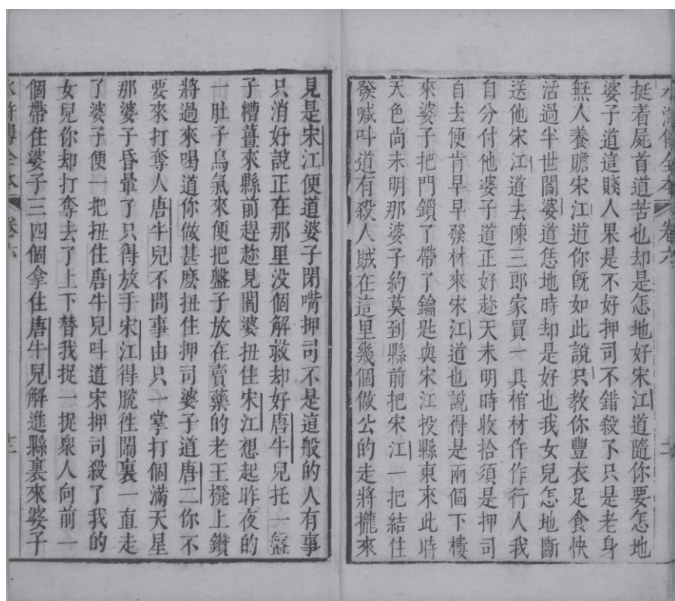 水滸傳全本 卷六 二
挺着屍首道苦也却是怎地好宋江道隨你要怎地
婆子道這賤人果是不好押司不錯殺了只是老身
無人養贍宋江道你旣如此說只教你豐衣足食快
活過半世閻婆道恁地時却是好也我女兒怎地斷
送他宋江道去陳三郎家買一具棺材仵作行人我
自分付他婆子道正好趂天未明時收拾須是押司
自去便肯早早發材來宋江道也說得是兩個下樓
來婆子把門鎖了帶了鑰匙與宋江投縣東來此時
天色尚未明那婆子約莫到縣前把宋江一把結住
發喊呌道有殺人賊在這里幾個做公的走將攏來
見是宋江便道婆子閉嘴押司不是這般的人有事
只消好說正在那里没個解救却好唐牛兒托一盤
子糟薑來縣前趕趂見閻婆扭住宋江想起昨夜的
一肚子鳥氣來便把盤子放在賣藥的老王櫈上鑽
將過來喝道你做甚麽扭住押司婆子道唐二你不
要來打奪人唐牛兒不問事由只一掌打個滿天星
那婆子昏暈了只得放手宋江得脫徃鬧裏一直走
了婆子便一把扭住唐牛兒呌道宋押司殺了我的
女兒你却打奪去了上下替我捉一捉衆人向前一
個帶住婆子三四個拿住唐牛兒解進縣裏來婆子
水滸傳全本 卷六